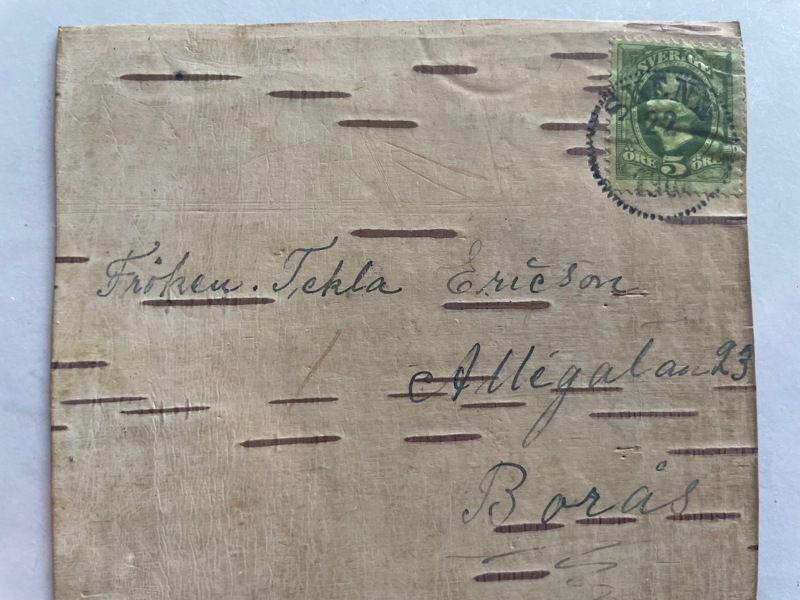 SVERIGE
ÖRE 5 ÖRE
22
Fröken. Tekla Ericson
Allégatan 23
Borås